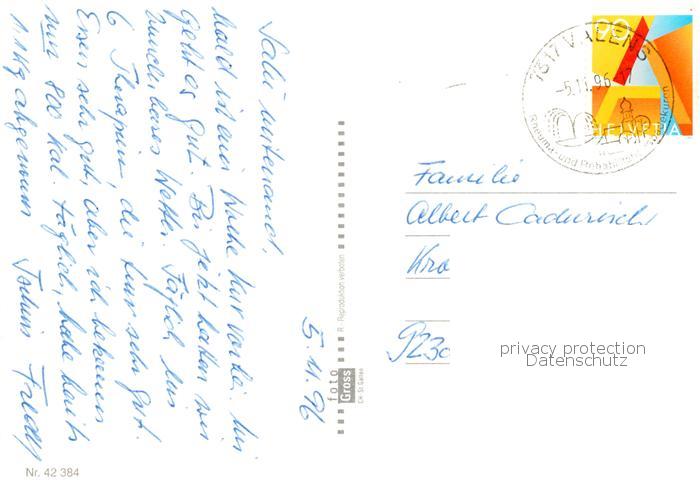 5.11.96
Salü mitenand,
bald ist eine Woche Kur vorbei. Mir
geht es gut. Bis jetzt hatten wir
wunderbares Wetter. Täglich bis
6 Therapien, die Kur sehr gut.
Essen sehr gut, aber ich bekomme
nur 800 kal. täglich, habe bereits
1.1 Kg abgenommen Tschüss Freddy
Nr. 42 384
R - Reproduktion verboten
foto
Gross
CH-St. Gallen
90
A
HELVETIA
7317 VALENS
-5.11.96-17
Rheuma- und Rehabilitations
Familie
Albert
Kro
923
privacy protection
Datenschutz